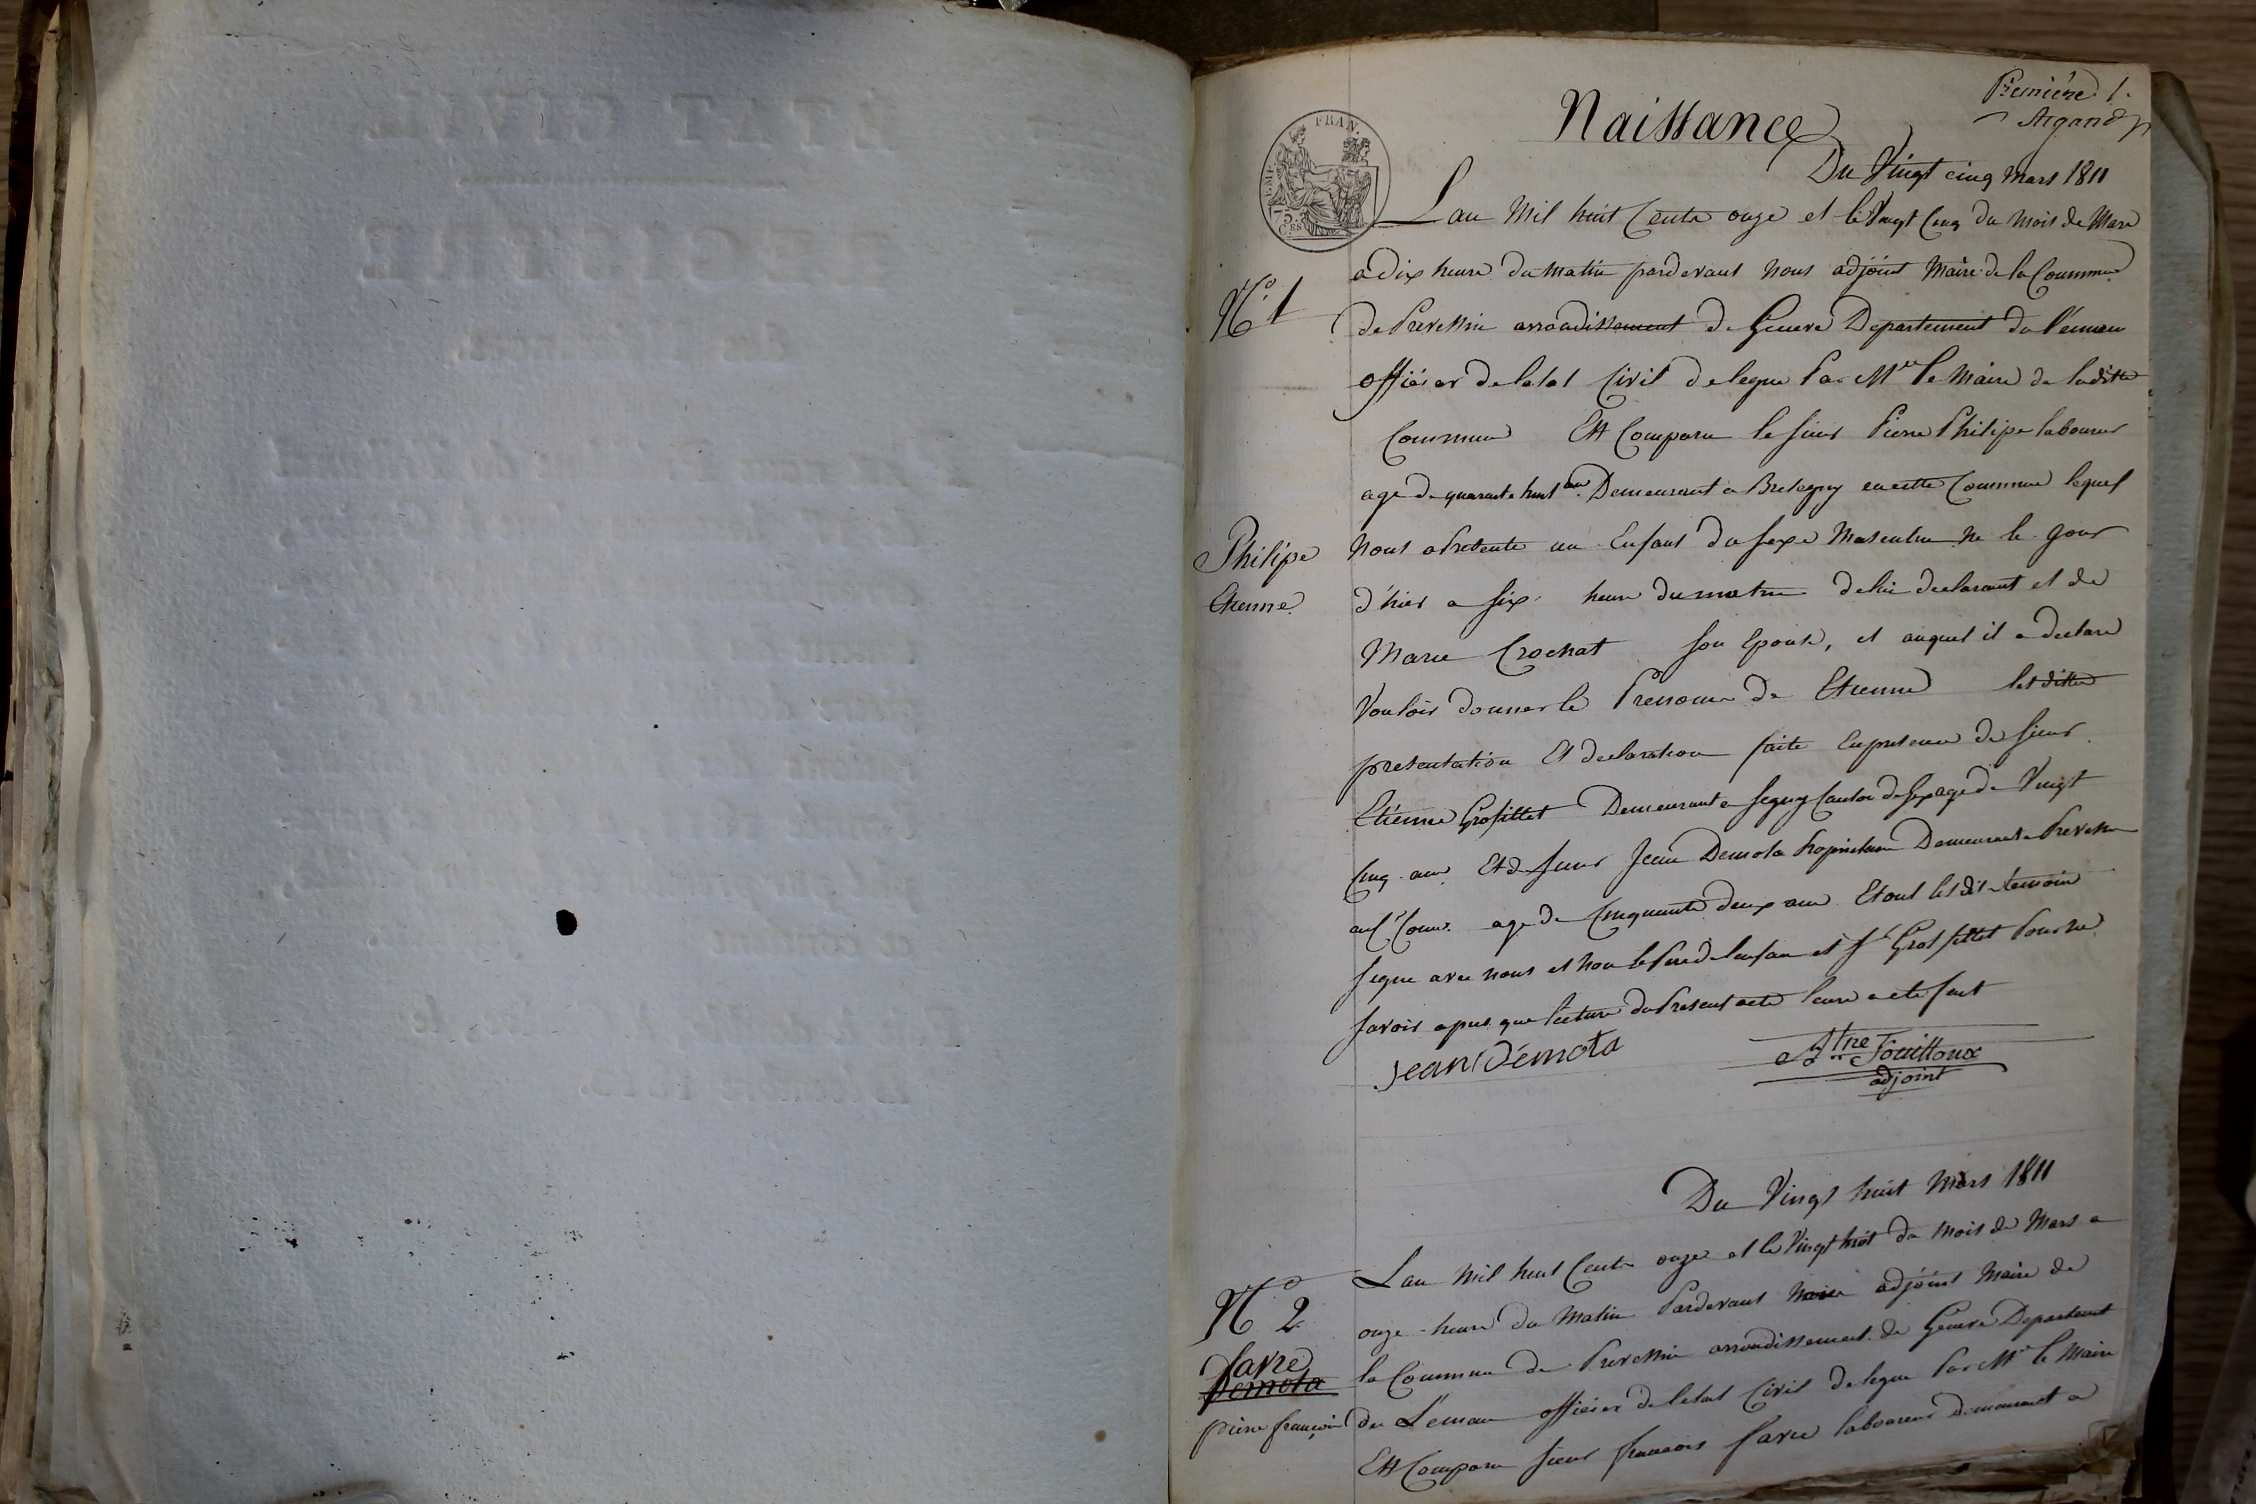 Première 1.
Argand
Naissance
Du Vingt cinq mars 1811
FRAN.
75.
CES
N.o 1
Philipe
Etienne
Lan Mil huit Cents onze et le Vingt Cinq du mois de Mars
a dix heure du matin pardevant nous adjoint Maire de la Commune
de Prevessin arrondissement de Geneve Departement du Léman
officier de letat Civil delegue Par Mr le Maire de laditte
Commune Est Comparu le sieur Pierre Philipe laboureur
age de quarante huit ans Demeurant a Bretegny en cette Commune lequel
Nous a Presente un Enfant du sexe Masculin Ne le jour
d'hier a six heure du matin de lui declarant et de
Marie Crochat son Epouse, et auquel il a declare
Vouloir donner le Prenom de Etienne lesdittes
presentation Et declaration faite En presence du sieur
Etienne Grosfillet Demeurant a Segny Canton de Gex age de Vingt
Cinq ans Et du sieur Jean Demola Propriétaire Demeurant a Prevessin
age de Cinquante deux ans Et ont lesdit temoin
signe avec nous et Non le Pere de lenfan et sr Grosfillet Pour ne
savoir apres que lecture du Present acte leure a ete fait
jean démola
Fouilloux
adjoint
Du Vingt huit Mars 1811
N.o 2
favre
Demola
pierre françois
Lan Mil huit Cents onze et le Vingt huit du mois de Mars a
onze heure du Matin Pardevant Nous adjoint Maire de
la Commune de Prevessin arrondissement de Geneve Departement
du Léman officier de letat Civil delegue Par Mr le Maire
Est Comparu sieur francois favre laboureur demeurant a